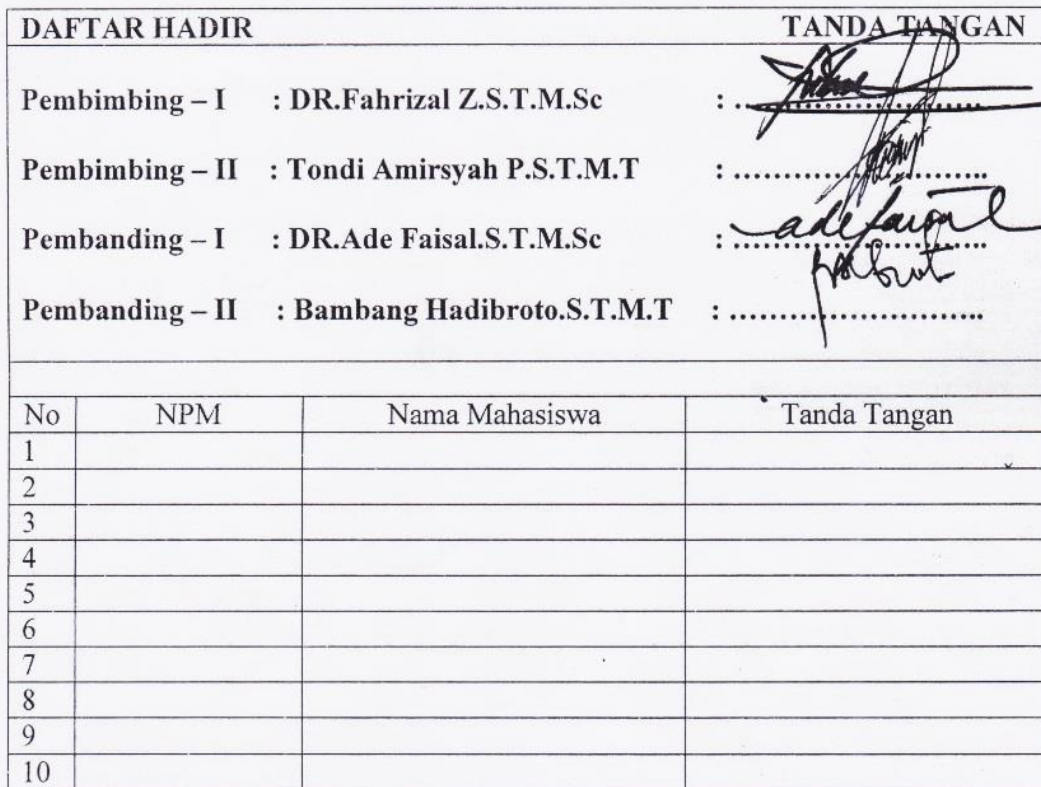 DAFTAR HADIR TANDA TANGAN
Pembimbing – I : DR.Fahrizal Z.S.T.M.Sc : ........................
Pembimbing – II : Tondi Amirsyah P.S.T.M.T : ........................
Pembanding – I : DR.Ade Faisal.S.T.M.Sc : ........................
ade faisal
Pembanding – II : Bambang Hadibroto.S.T.M.T : ........................
No NPM Nama Mahasiswa Tanda Tangan
1
2
3
4
5
6
7
8
9
10